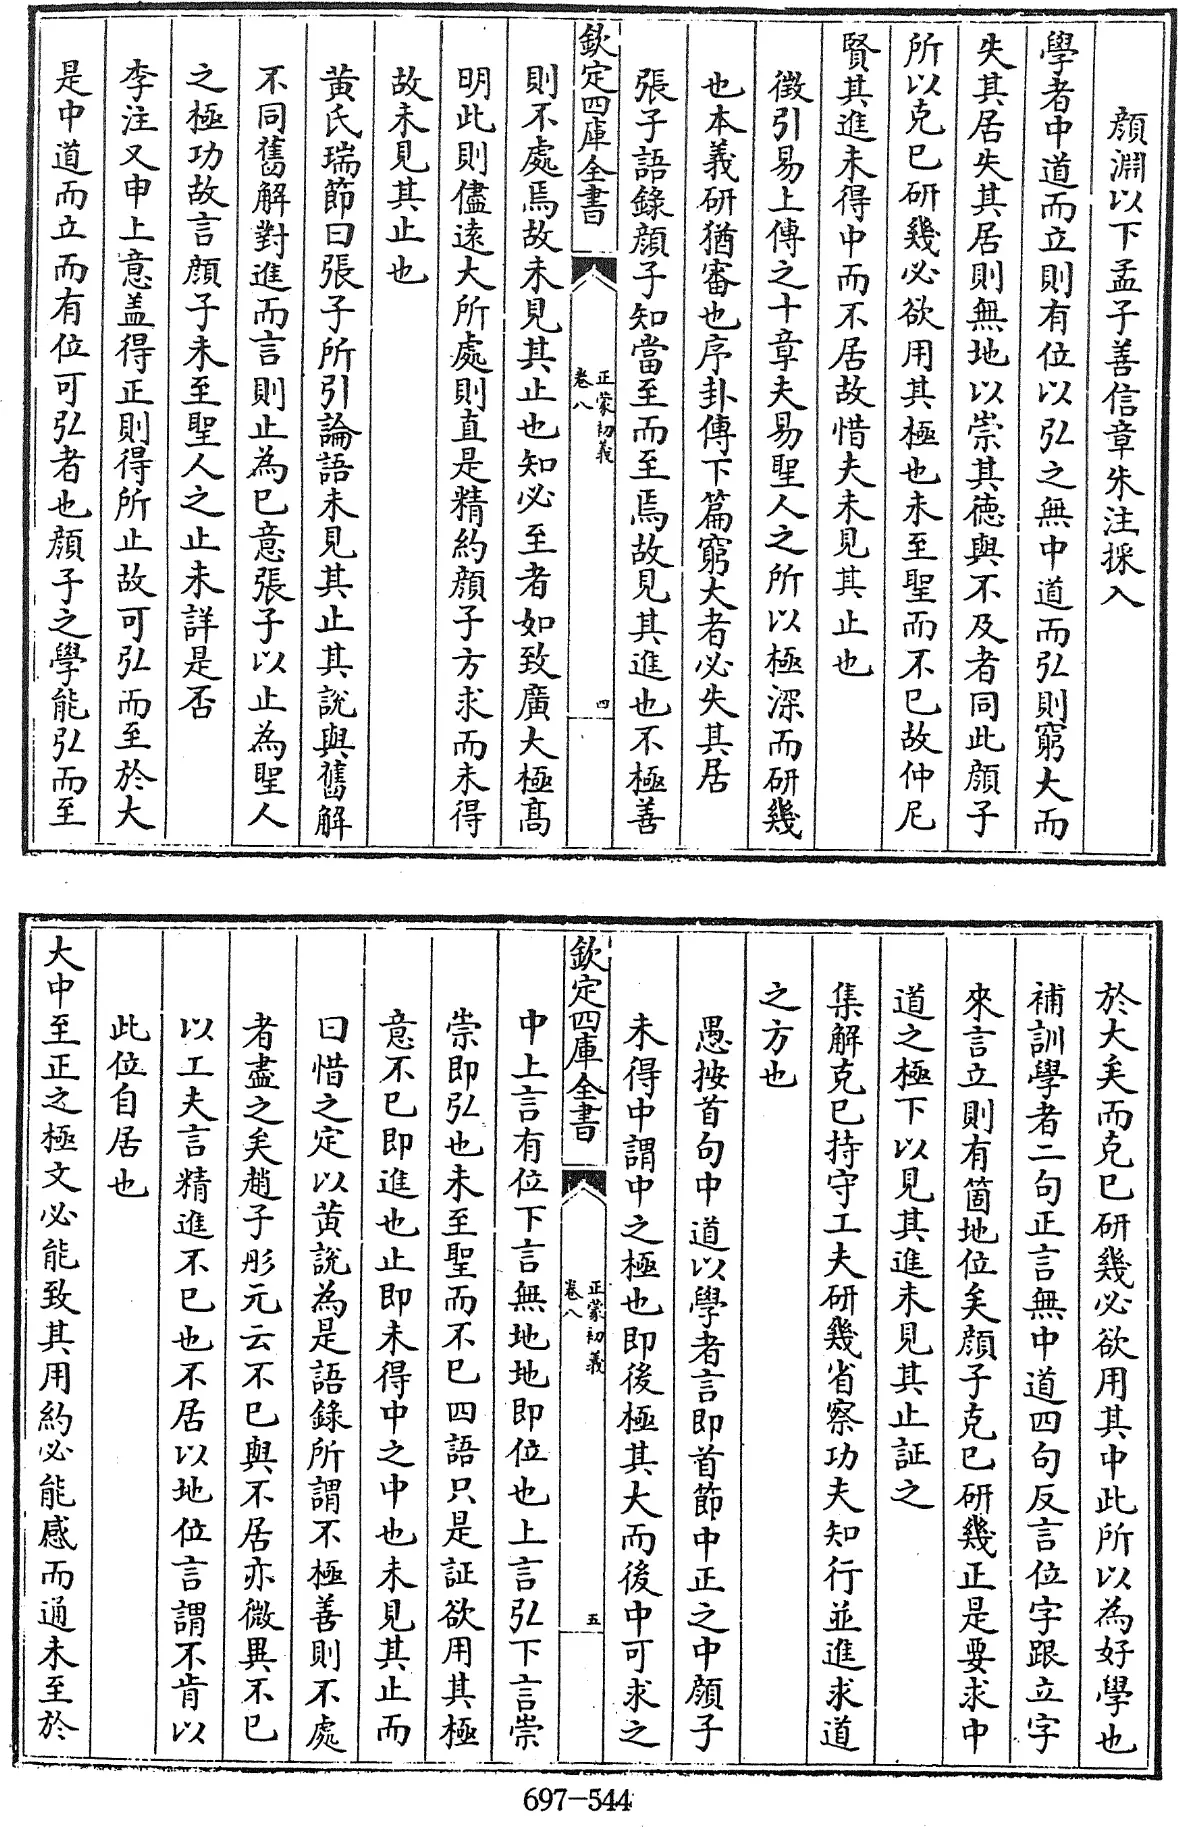 顔淵以下孟子善信章朱注採入
學者中道而立則有位以弘之無中道而弘則窮大而
失其居失其居則無地以崇其德與不及者同此顔子
所以克已研幾必欲用其極也未至聖而不已故仲尼
賢其進未得中而不居故惜夫未見其止也
徵引易上傳之十章夫易聖人之所以極深而研幾
也本義研猶審也序卦傳下篇窮大者必失其居
張子語錄顔子知當至而至焉故見其進也不極善
欽定四庫全書
正蒙初義
卷八
四
則不處焉故未見其止也知必至者如致廣大極高
明此則儘遠大所處則直是精約顔子方求而未得
故未見其止也
黄氏瑞節曰張子所引論語未見其止其說與舊解
不同舊解對進而言則止為已意張子以止為聖人
之極功故言顔子未至聖人之止未詳是否
李注又申上意盖得正則得所止故可弘而至於大
是中道而立而有位可弘者也顔子之學能弘而至
於大矣而克已研幾必欲用其中此所以為好學也
補訓學者二句正言無中道四句反言位字跟立字
來言立則有箇地位矣顔子克已研幾正是要求中
道之極下以見其進未見其止証之
集解克已持守工夫研幾省察功夫知行並進求道
之方也
愚按首句中道以學者言即首節中正之中顔子
未得中謂中之極也即後極其大而後中可求之
欽定四庫全書
正蒙初義
卷八
五
中上言有位下言無地地即位也上言弘下言崇
崇即弘也未至聖而不已四語只是証欲用其極
意不已即進也止即未得中之中也未見其止而
曰惜之定以黄說為是語錄所謂不極善則不處
者盡之矣趙子彤元云不已與不居亦微異不已
以工夫言精進不已也不居以地位言謂不肯以
此位自居也
大中至正之極文必能致其用約必能感而通未至於
697-544